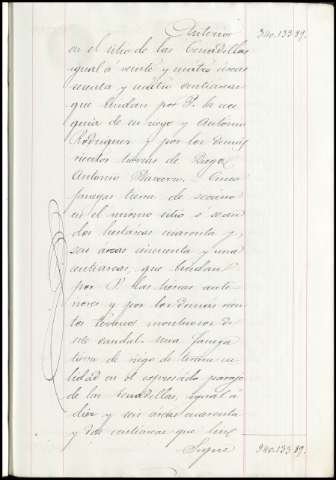 Anterior 340.133.89.
en el sitio de las Cuadrillas
igual á veinte y cuatro áreas
y cuatro centiareas
que lindan por P. la
de su riego y Antonio
Rodriguez y por los demás
vientos tierras de
Antonio Cinco
fanegas tierra de secano
en el mismo sitio o sean
dos hectareas cuarenta y
seis áreas cincuenta y una
centiareas, que lindan
por P. las tierras ante
riores y por los demás vien
tos terrenos montuosos de
este caudal. una fanega
tierra de riego de tercera ca
lidad en el expresado parage
de las Cuadrillas, igual á
diez y seis áreas cuarenta
y dos centiareas que lin
Sigue 340.133.89.